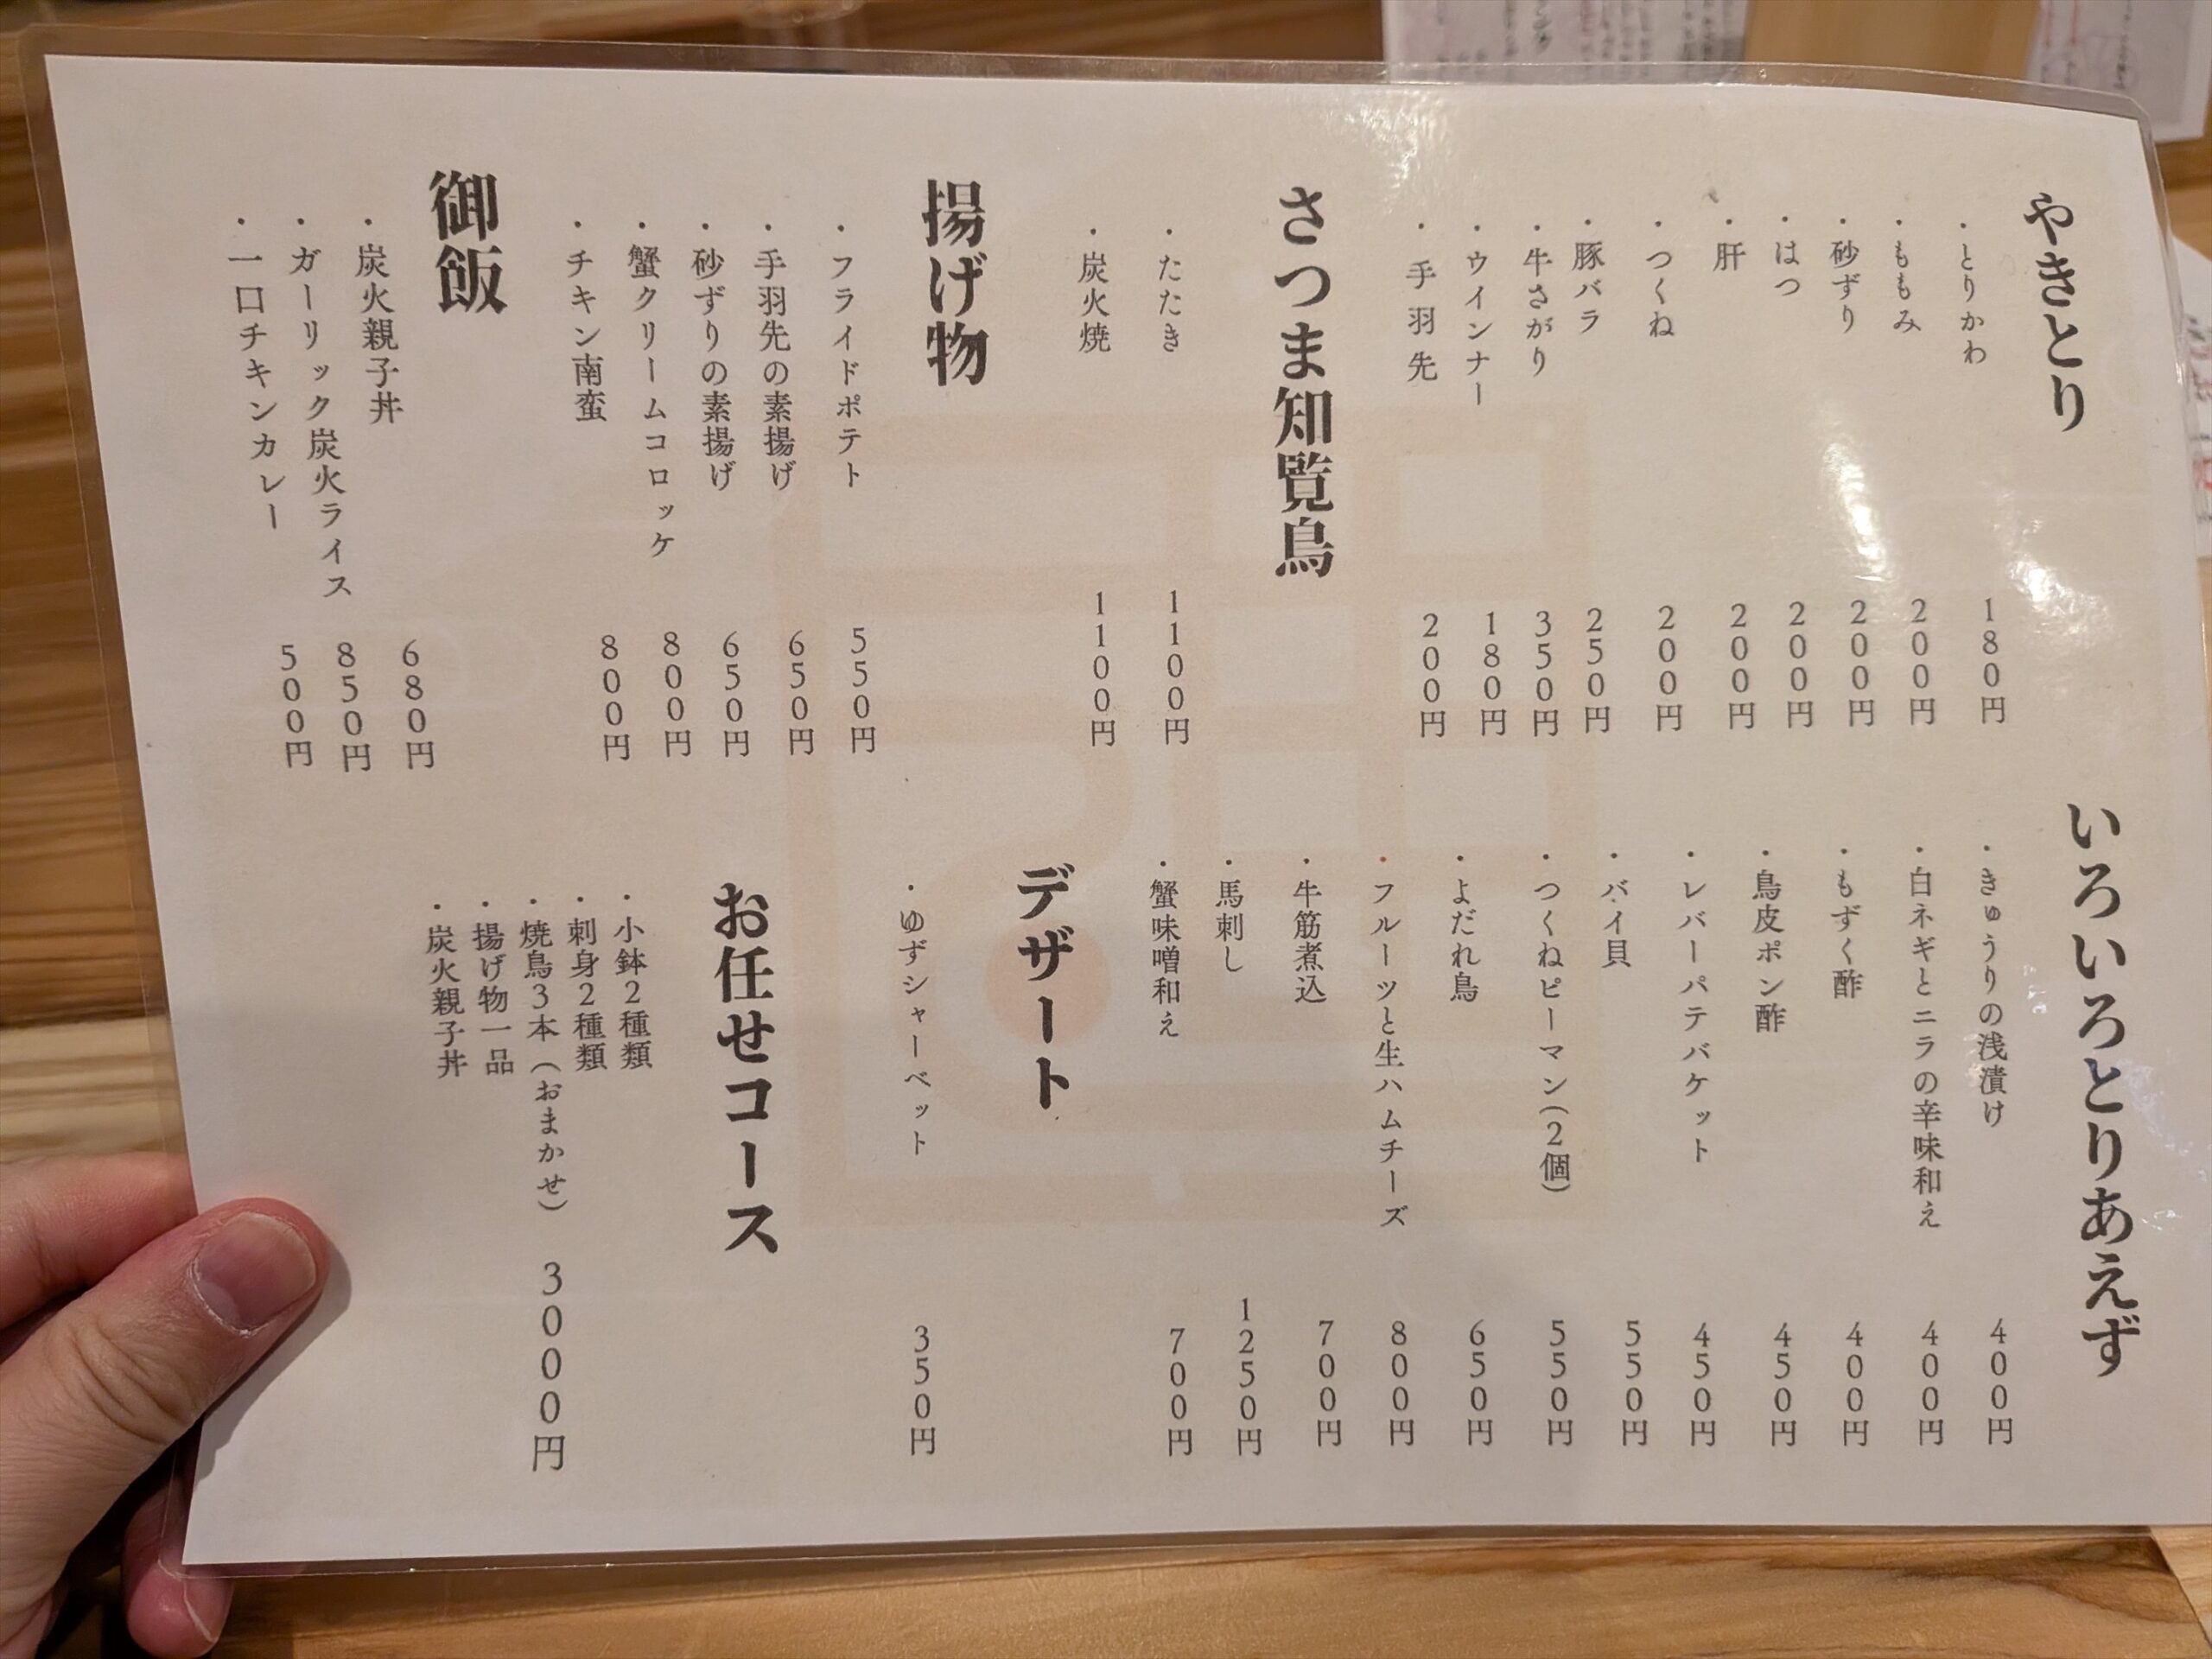 やきとり
・とりかわ 180円
・ももみ 200円
・砂ずり 200円
・はつ 200円
・肝 200円
・つくね 200円
・豚バラ 250円
・牛さがり 350円
・ウインナー 180円
・手羽先 200円
さつま知覧鳥
・たたき 1100円
・炭火焼 1100円
揚げ物
・フライドポテト 550円
・手羽先の素揚げ 650円
・砂ずりの素揚げ 650円
・蟹クリームコロッケ 800円
・チキン南蛮 800円
御飯
・炭火親子丼 680円
・ガーリック炭火ライス 850円
・一口チキンカレー 500円
いろいろとりあえず
・きゅうりの浅漬け 400円
・白ネギとニラの辛味和え 400円
・もずく酢 400円
・鳥皮ポン酢 450円
・レバーパテバケット 450円
・バイ貝 550円
・つくねピーマン(2個) 550円
・よだれ鳥 650円
・フルーツと生ハムチーズ 800円
・牛筋煮込 700円
・馬刺し 1250円
・蟹味噌和え 700円
デザート
・ゆずシャーベット 350円
お任せコース
・小鉢2種類
・刺身2種類
・焼鳥3本(おまかせ) 3000円
・揚げ物一品
・炭火親子丼